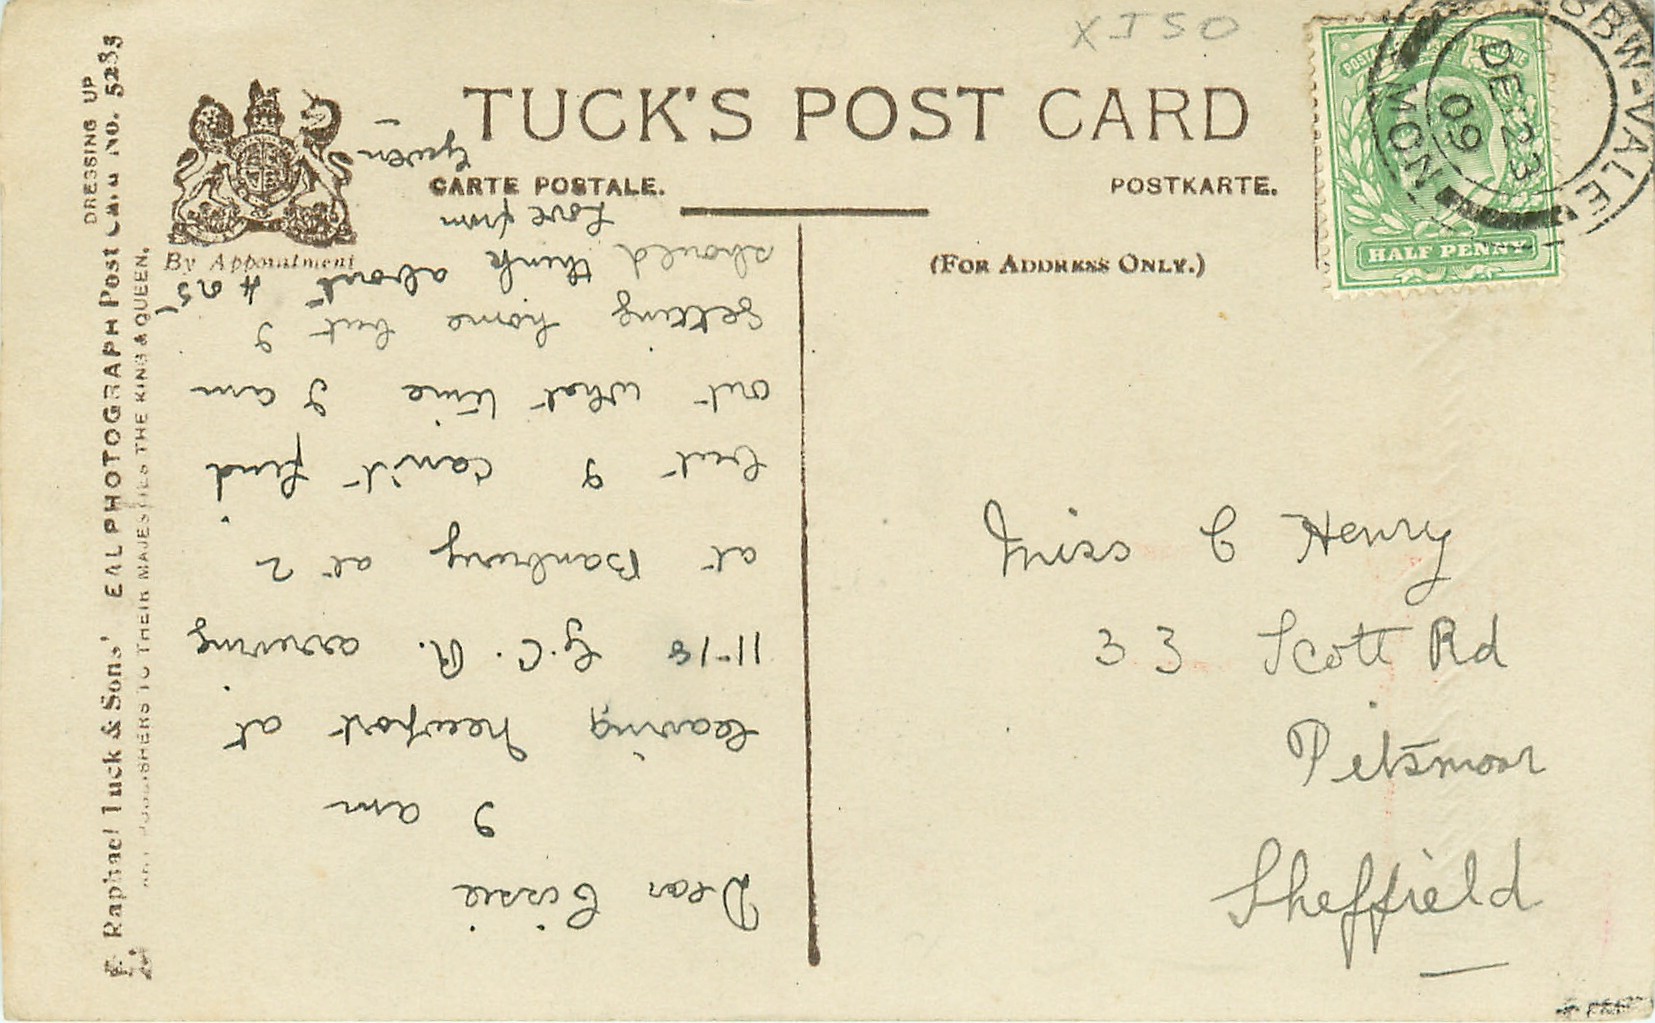 XISO
TUCK'S POST CARD
CARTE POSTALE.
POSTKARTE.
By Appointment
(FOR ADDRESS ONLY.)
EBBW-VALE
DE 23
09
MON
HALF PENNY
DRESSING UP
Raphael Tuck & Sons' REAL PHOTOGRAPH Post Card No. 5233
ART PUBLISHERS TO THEIR MAJESTIES THE KING & QUEEN.
Miss C Henry
33 Scott Rd
Pitsmoor
Sheffield
Dear Cissie
I am
leaving Newport at
11-18 G.C.R. arriving
at Banbury at 2
but I can't find
out what time I am
getting home but I
should think about 4.25
Love from
Gwen